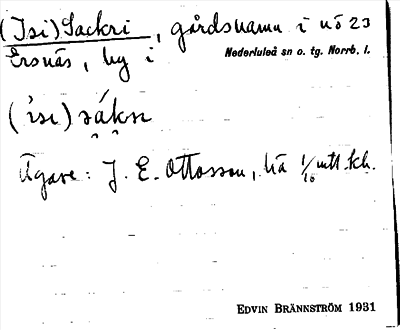 (Isi)Sackri, gårdsnamn i nö 23
Ersnäs, by i Nederluleå sn o. tg. Norrb. l.
(ɩsɩ) sákrɩ
Ägare: J. E. Ottosson, hä 1/16 mtl. kh.
EDVIN BRÄNNSTRÖM 1931